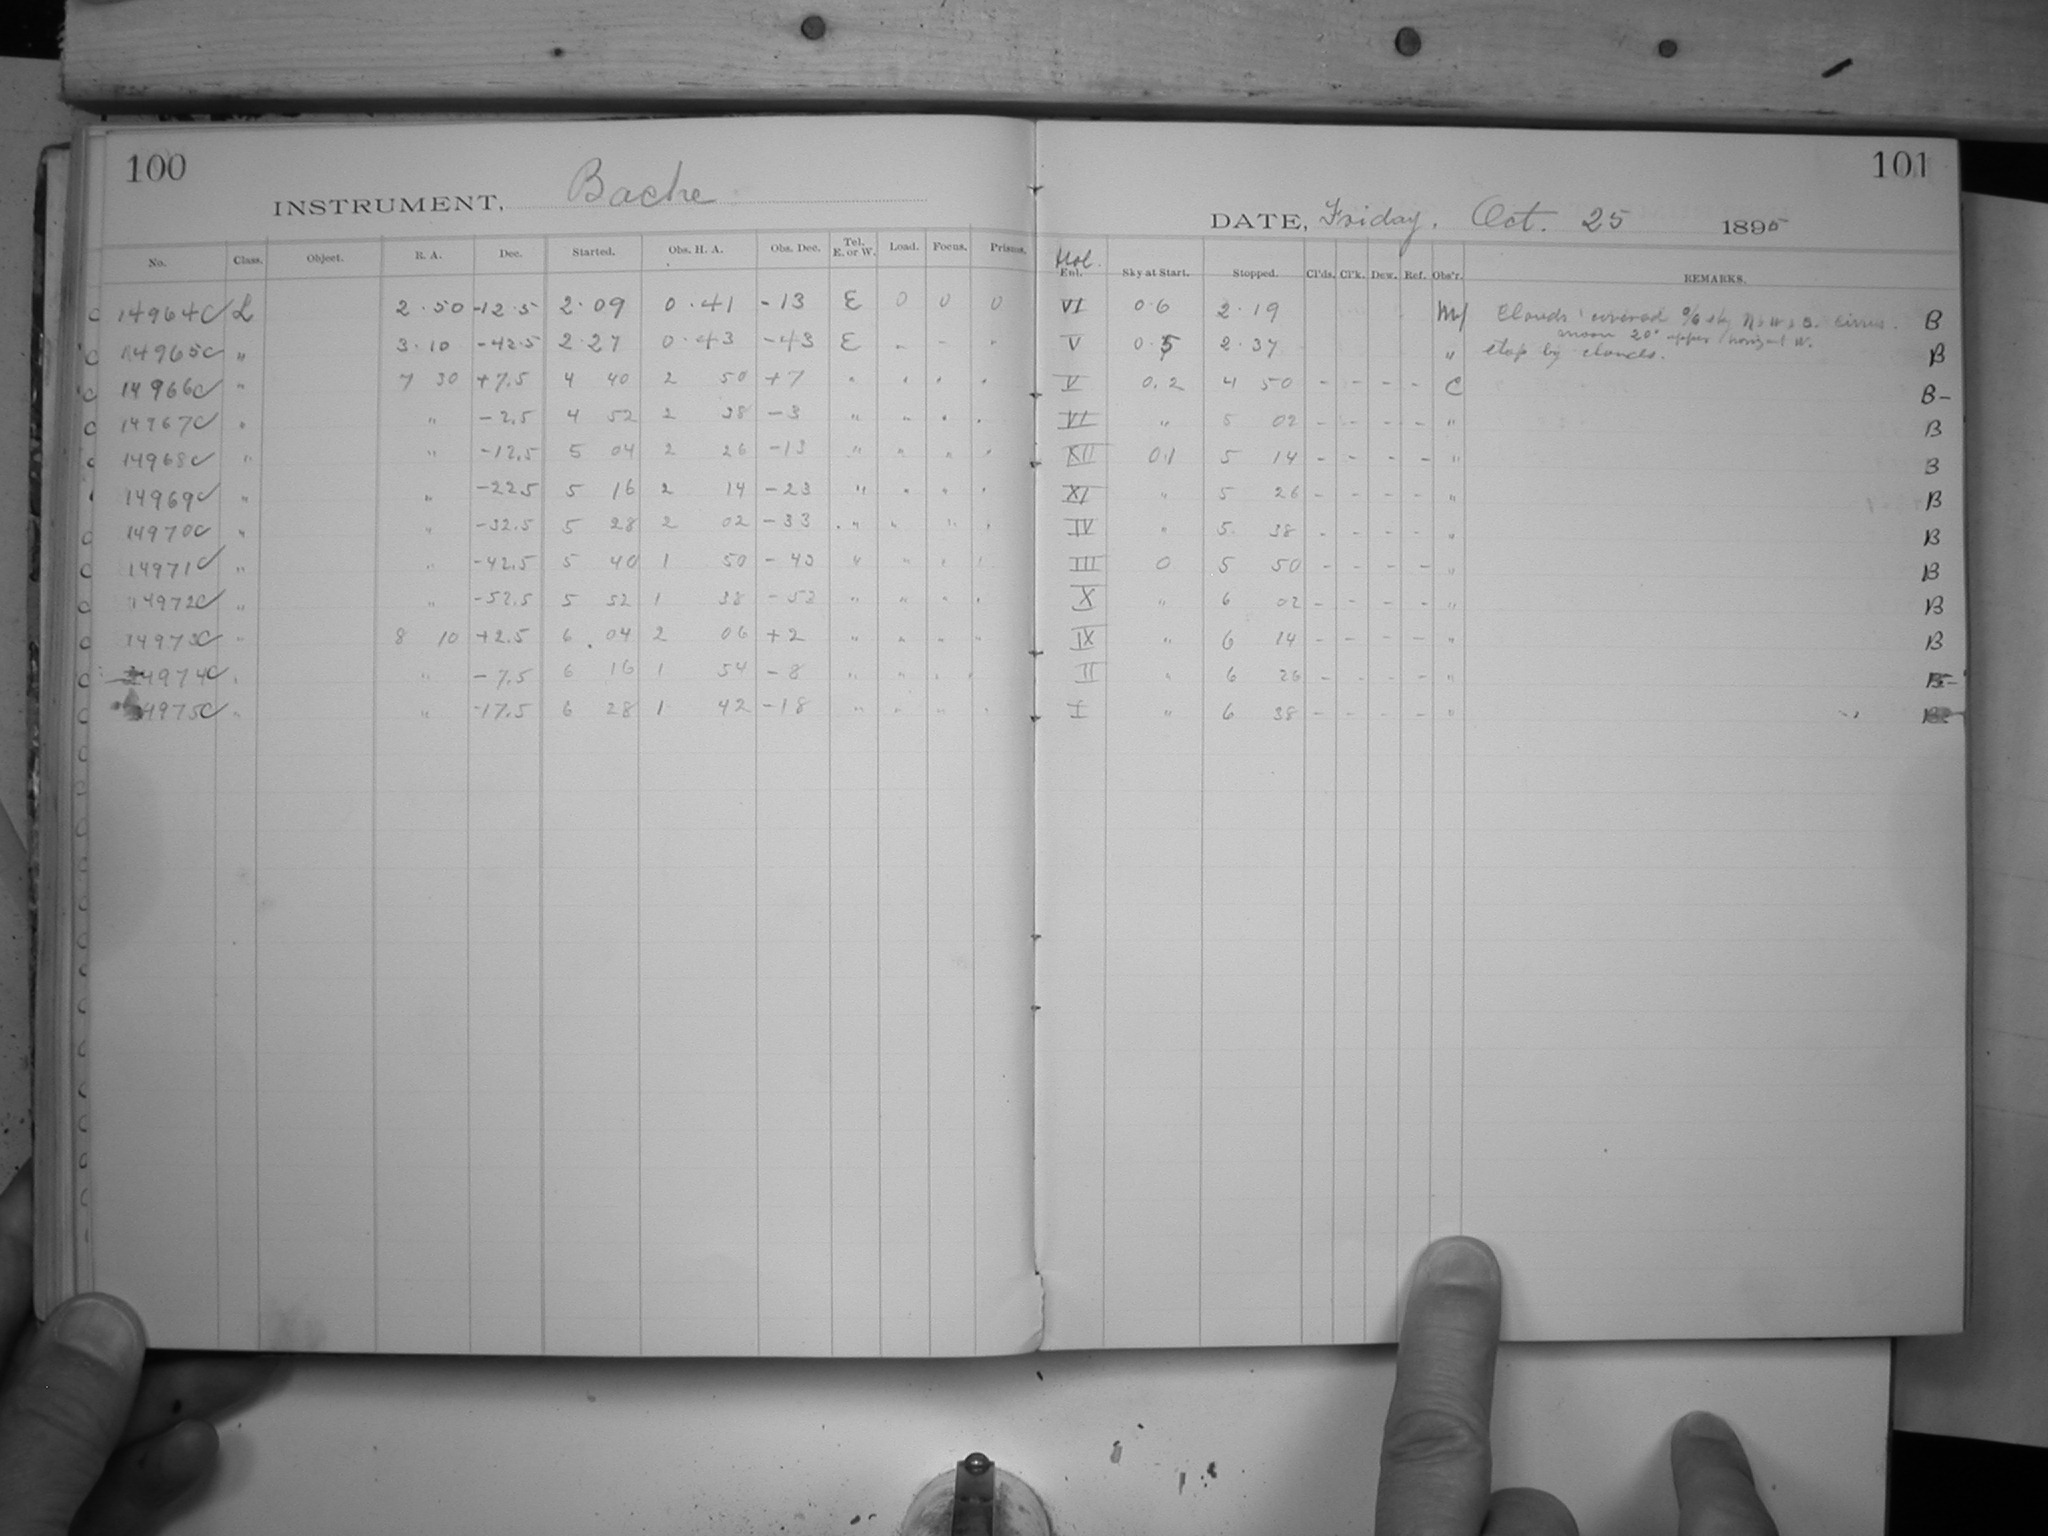 100
INSTRUMENT, Bache
101
DATE, Friday, Oct. 25 1895
No. Class. Object. R. A. Dec. Started. Obs. H. A. Obs. Dec. Tel. E. or W. Load. Focus. Prisms. Hol. Ent. Sky at Start. Stopped. Cl'ds. Cl'k. Dew. Ref. Obs'r. REMARKS.
C 14964C L 2.50 -12.5 2.09 0.41 -13 E 0 0 0 VI 0.6 2.19 Clouds covered sky N. W. & S. Cirrus. B
moon 20° upper horizont W.
C 14965C " 3.10 -42.5 2.27 0.43 -43 E " - " V 0.5 2.37 " stop by clouds. B
C 14966C " 7 30 +7.5 4 40 2 50 +7 " " " " V 0.2 4 50 - - - - C B-
C 14967C " " -2.5 4 52 2 38 -3 " " " " VI " 5 02 - - - - " B
C 14968C " " -12.5 5 04 2 26 -13 " " " " XII 0.1 5 14 - - - - " B
14969C " " -22.5 5 16 2 14 -23 " " " " XI " 5 26 - - - - " B
C 14970C " " -32.5 5 28 2 02 -33 " " " " IV " 5 38 - - - - " B
C 14971C " " -42.5 5 40 1 50 -43 " " " " III 0 5 50 - - - - " B
C 14972C " " -52.5 5 52 1 38 -53 " " " " X " 6 02 - - - - " B
C 14973C " 8 10 +2.5 6 04 2 06 +2 " " " " IX " 6 14 - - - - " B
C 14974C " " -7.5 6 16 1 54 -8 " " " " II " 6 26 - - - - " B-
C 14975C " " -17.5 6 28 1 42 -18 " " " " I " 6 38 - - - - " B-